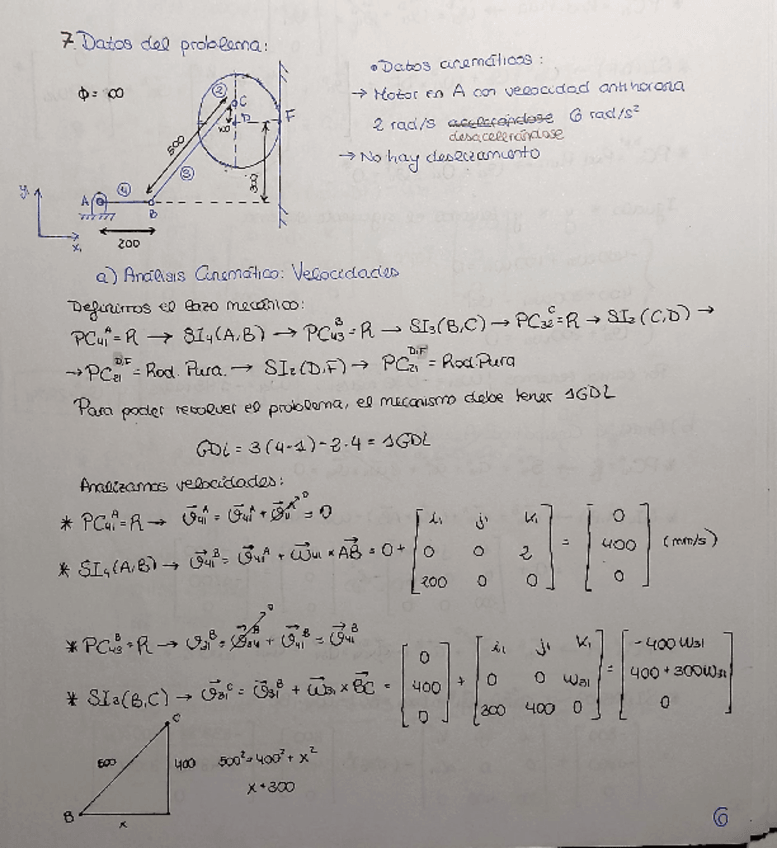 7. Datos del problema:
• Datos cinemáticos:
Φ = ∞
→ Motor en A con velocidad antihoraria
2 rad/s acelerándose 6 rad/s²
desacelerándose
→ No hay deslizamiento
2
C
D
F
500
3
4
A
B
200
y₁
x₁
a) Análisis Cinemático: Velocidades
Definimos el lazo mecánico:
PC₄₁ᴬ = R → SI₄(A,B) → PC₄₃ᴮ = R → SI₃(B,C) → PC₃₂ᶜ = R → SI₂(C,D) →
→ PC₂₁ᴰ'ᶠ = Rod. Pura. → SI₂(D,F) → PC₂₁ᴰ'ᶠ = Rod. Pura
Para poder resolver el problema, el mecanismo debe tener 1GDL
GDL = 3(4-1) - 2·4 = 1GDL
Analizamos velocidades:
* PC₄₁ᴬ = R → v₄₁ᴬ = v₄₁ᴬ + v₁₁ᴬ = 0
* SI₄(A,B) → v₄₁ᴮ = v₄₁ᴬ + ω₄₁ × AB = 0 + [i₁ j₁ k₁; 0 0 2; 200 0 0] = [0; 400; 0] (mm/s)
* PC₄₃ᴮ = R → v₃₁ᴮ = v₃₄ᴮ + v₄₁ᴮ = v₄₁ᴮ
* SI₃(B,C) → v₃₁ᶜ = v₃₁ᴮ + ω₃₁ × BC = [0; 400; 0] + [i₁ j₁ k₁; 0 0 ω₃₁; 300 400 0] = [-400ω₃₁; 400+300ω₃₁; 0]
C
500
400
500² = 400² + x²
x = 300
B
x
6